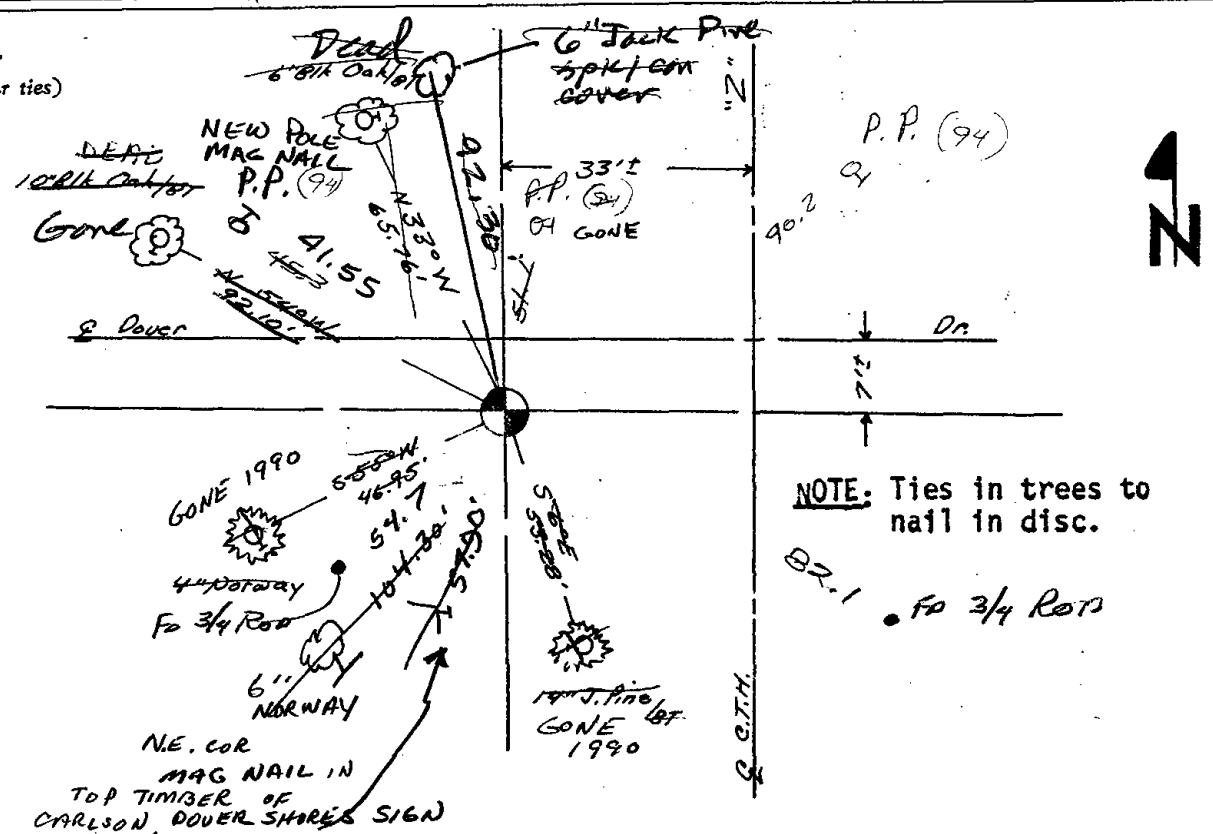 r ties)
Dead
6" Blk Oak/BT
6" Jack Pine
spk/con
cover
"Z"
P.P. (94)
90.2
NEW POLE
MAG NAIL
P.P. (94)
41.55
45.3
DEAD
10" Blk Oak/BT
Gone
N 54° W
92.10'
N 33° W
65.76'
92.30'
33'±
P.P. (94)
GONE
51'
℄ Dover
Dr.
7'±
N
GONE 1990
S 55° W
46.95'
4" Norway
54.7
Fd 3/4 Rod
104.30'
57.90'
6"
NORWAY
S 6° E
55.28'
14" J. Pine/BT
GONE
1990
NOTE: Ties in trees to
nail in disc.
82.1
Fd 3/4 Rod
℄ C.T.H.
N.E. COR
MAG NAIL IN
TOP TIMBER OF
CARLSON DOVER SHORES SIGN